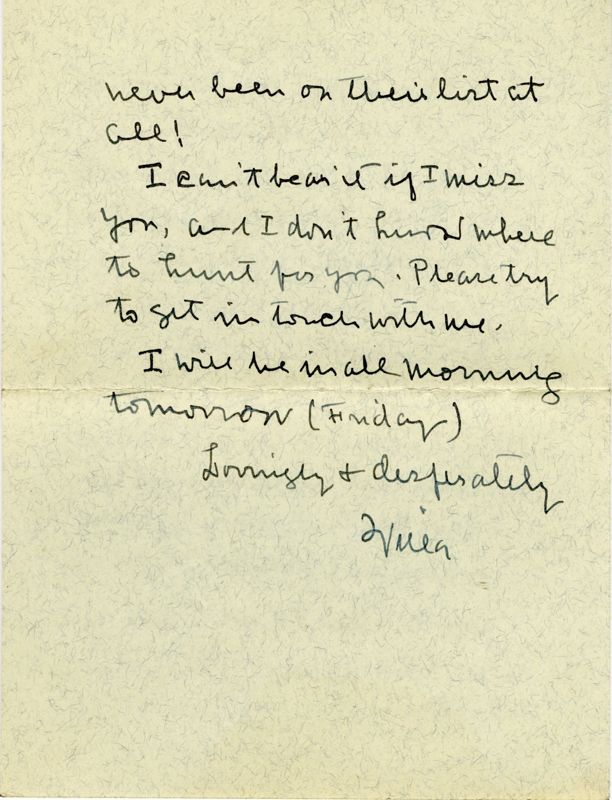 never been on their list at
all!
I can't bear it if I miss
you, and I don't know where
to hunt for you. Please try
to get in touch with me.
I will be in all morning
tomorrow (Friday)
Lovingly & desperately
Willa